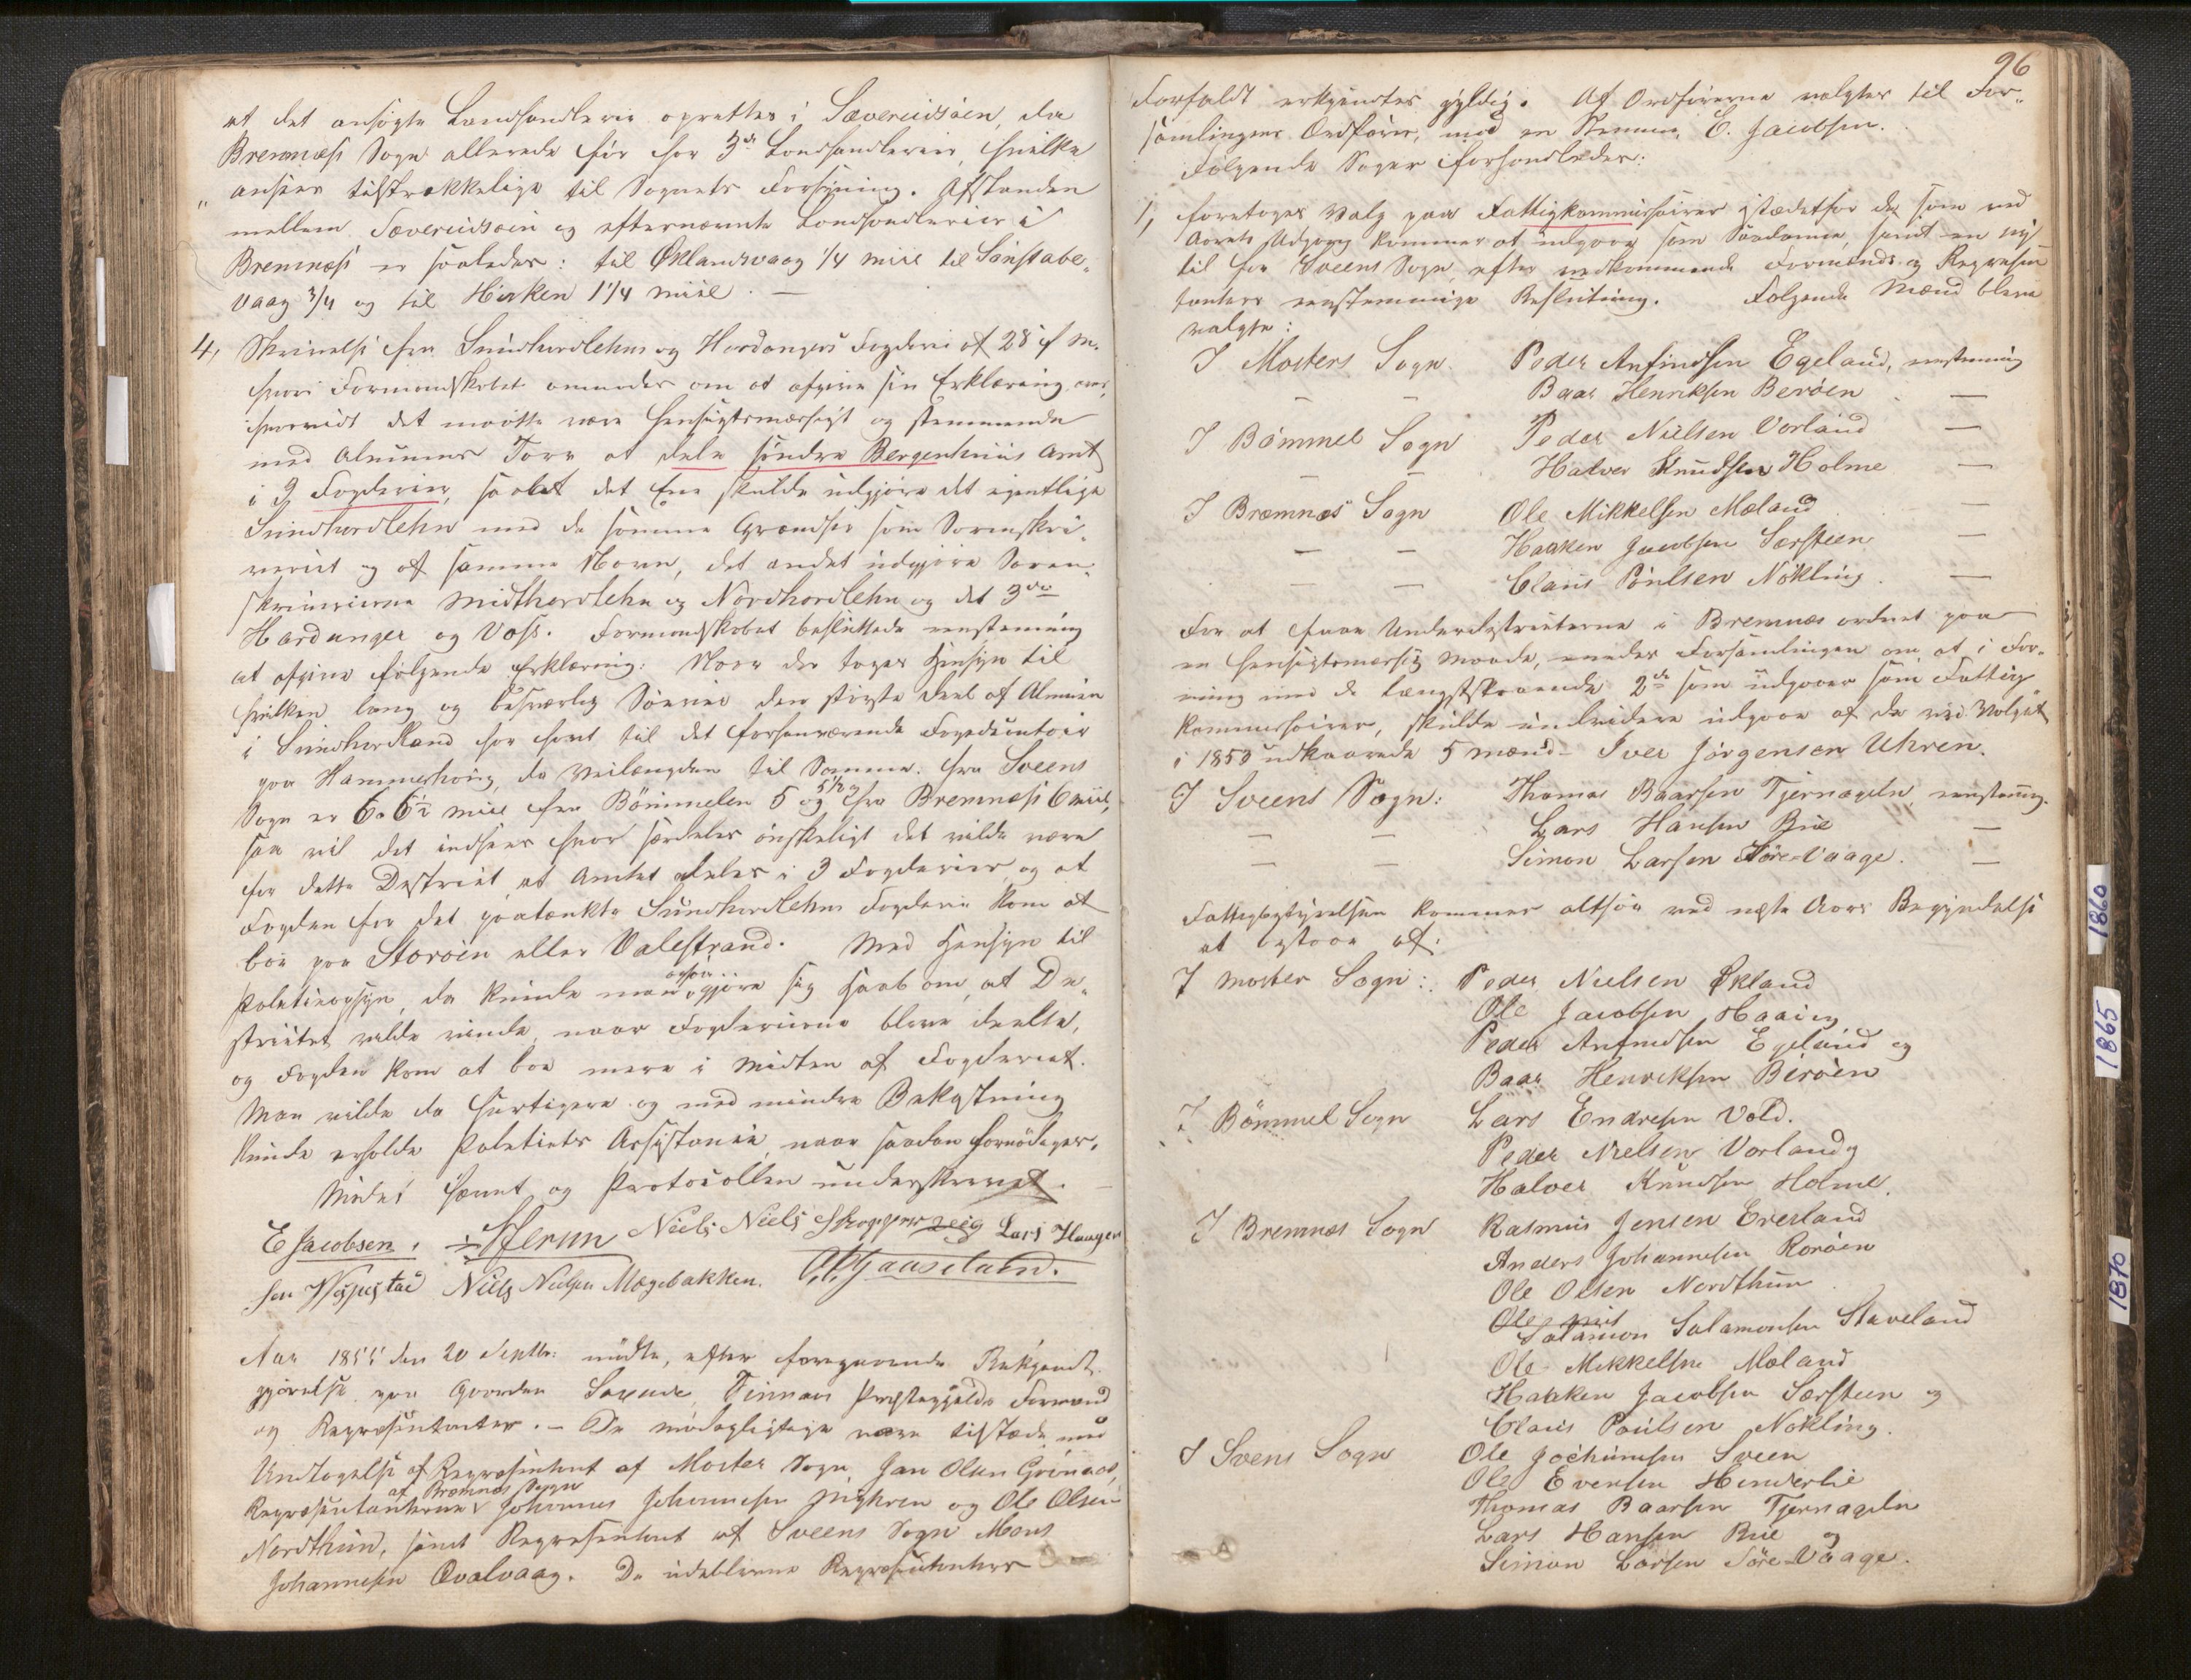 at det ansøgte Landhandlerie oprettes i Sævereidsøen, da
Bremnæss Sogn allerede før har 3de Landhandlerier, hvilke
ansees tilstrækkelige til Sognets Forsyning. Afstanden
mellem Sævereidsøen og efternævnte Landhandlerier i
Bremnæss er saaledes: til Øklandsvaag 1/4 miil til Lønstabe-
vaag 3/4 og til Hisken 1 1/4 miil. —
4, Skrivelse fra Sundhordlehns og Hardangers Fogderi af 28 f. M.
hvori Formandskabet anmodes om at afgive sin Erklæring om,
hvorvidt det maatte være hensigtsmæssigt og stemmende
med Almuens Tarv at dele søndre Bergenhuus Amt
i 3 Fogderier, saalat det Ene skulde udgjøre det egentlige
Sundhordlehn med de samme Grændser som Sorenskri-
veriet og af samme Navn, det andet udgjøre Soren-
skriverierne Midthordlehn og Nordhordlehn og det 3die
Hardanger og Voss. Formandskabet besluttede eenstemmig
at afgive følgende Erklæring: Naar der tages Hensyn til
hvilken lang og besværlig Søevei den største Deel af Almuen
i Sundhordland har havt til det forhenværende Fogedcontoir
paa Hammerhoug, da Veilængden til Samme fra Sveens
Sogn er 6 a 6 1/2 miil fra Bømmelen 5 og 5 1/2 og fra Bremnæss 6 miil,
saa vil det indsees hvor særdeles ønskeligt det vilde være
for dette District at Amtet deles i 3 Fogderier, og at
Fogden for det paatænkte Sundhordlehns Fogderi kom at
boe paa Storøen eller Valestrand. Med Hensyn til
Politieopsyn, da kunde man ogsaa gjøre sig Haab om, at Di-
strictet vilde vinde, naar Fogderierne bleve deelte,
og Fogden kom at boe mere i Midten af Fogderiet.
Man vilde da hurtigere og med mindre Bekostning
kunde erholde Politiets Assistance, naar saadan fornødiges.
Mødet hævet og Protocollen underskrevet.
E Jacobsen. Niels Niels Lars Haagen
sen Niels Nielsen Møgebakken.
Aar 1855 den 20 Septbr: mødte, efter foregaaende Bekjendt-
gjørelse paa Gaarden Finnaas Præstegjelds Formænd
og Repræsentanter. — De mødepligtige vare tilstæde med
Undtagelse af Repræsentant af Moster Sogn, Jan Olsen Grønnaas,
Repræsentanterne af Bremnæs Sogn Johannes Johannesen Myhren og Ole Olsen
Nordthun, samt Repræsentant af Sveens Sogn Mons
Johannesen Qvalvaag. De udeblevne Repræsentanters
96
Forfald erkjendtes gyldig. Af Ordførerne valgtes til For-
samlingens Ordfører, med en Stemme E. Jacobsen.
Følgende Sager forhandledes:
1, foretoges Valg paa Fattigkommissairer istædetfor de som ved
Aarets Udgang kommer at udgaae som Saadanne, samt en ny
til for Sveens Sogn, efter vedkommende Formænds og Repræsen-
tanters eenstemmige Beslutning. Følgende Mænd bleve
valgte:
I Mosters Sogn. Peder Anfindsen Egeland, eenstemmig
— — Baar Henriksen Berøen —
I Bømmel Sogn Peder Nielsen Vorland —
— — Halvor Knudsen Holme —
I Bræmnæs Sogn Ole Mikkelsen Mæland —
— — Haaken Jacobsen Sørsteen —
— — Claus Poulsen Nøkling. —
For at faae Underdistricterne i Bremnæs ordnet paa
en hensigtsmæssig Maade, enedes Forsamlingen om, at i For-
ening med de længstfungerende 2de som udgaaer som Fattig-
kommissairer, skulde endvidere udgaae af de ved Valget
i 1853 udkaarede 5 Mænd – Iver Jørgensen Uhren.
I Sveens Sogn: Thomas Baarsen Tjernageln, eenstemmig.
— — Lars Hansen Bue —
— — Simon Larsen Søre-Vaage. —
Fattigbestyrelsen kommer altsaa ved neste Aars Begyndelse
at bestaae af:
I Moster Sogn: Peder Nielsen Økland
Ole Jacobsen Haaeng
Peder Anfindsen Egeland og
Baar Henriksen Berøen
I Bømmel Sogn Lars Endresen Vold.
Peder Nielsen Vorland og
Halvor Knudsen Holme.
I Bremnæs Sogn Rasmus Jensen Eresland
Anders Johannesen Rorøen
Ole Olsen Nordthun
Ole
Salamon Salamonsen Staveland
Ole Mikkelsen Mæland
Haaken Jacobsen Sørsteen og
Claus Poulsen Nøkling.
I Sveens Sogn Ole Jochumsen Sveen
Ole Evensen Hinderlie
Thomas Baarsen Tjernageln
Lars Hansen Bue og
Simon Larsen Søre-Vaage.
1860
1865
1870